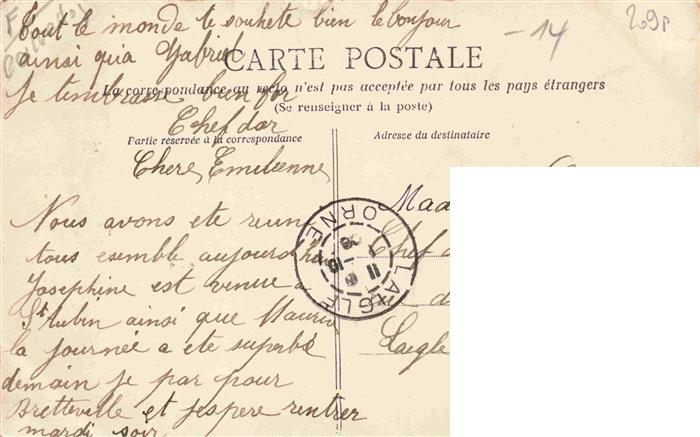 Tout le monde te souhete bien le bonjour
ainsi qu'a Gabriel
Je t'embrasse bien for
Chef dar
-14
209P
CARTE POSTALE
La correspondance au recto n'est pas acceptée par tous les pays étrangers
(Se renseigner à la poste)
Partie réservée à la correspondance
Adresse du destinataire
Chere Emilienne
Nous avons ete reuni
tous esemble aujourdhui
Josephine est venue a
St Aubin ainsi que Mauric
la journée a ete superbe
demain je par pour
Bretteville et j'espere rentrer
mardi soir
Mada
Chef d
Laigle
LAIGLE
ORNE
11